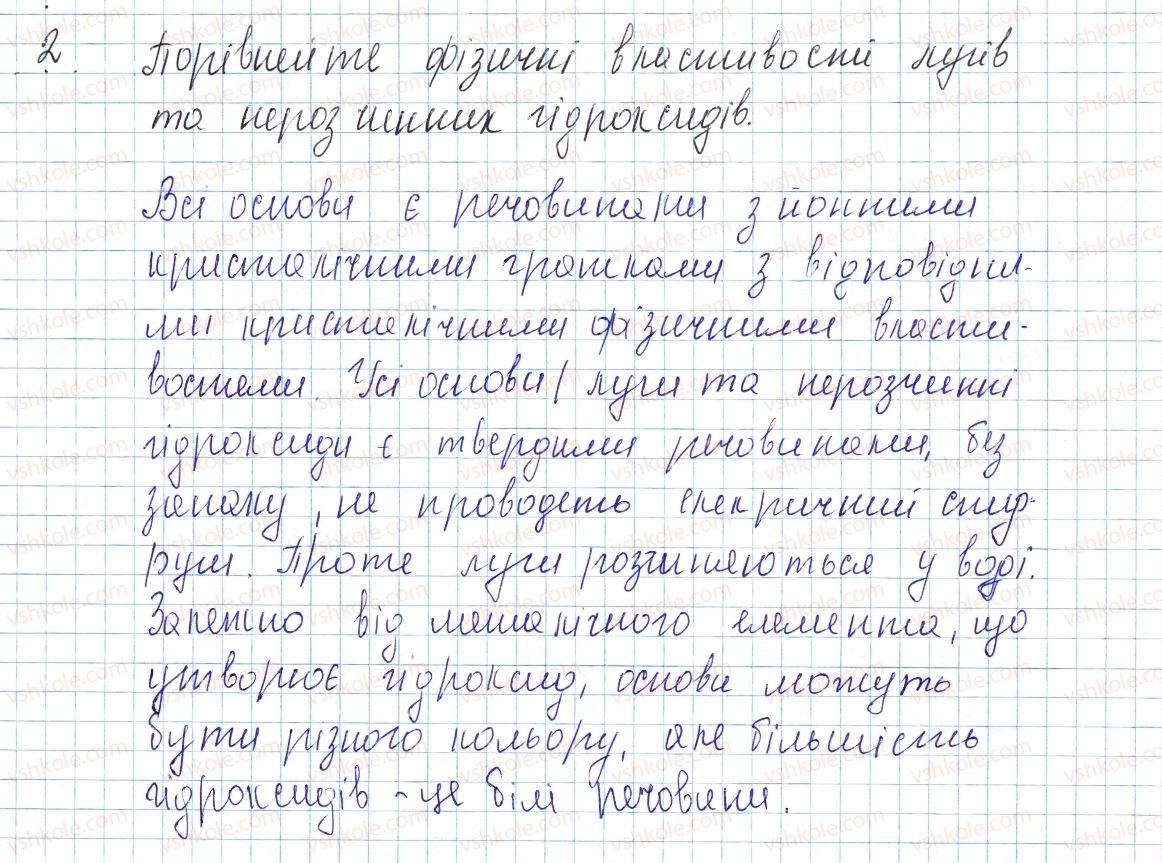 2. Порівняйте фізичні властивості лугів
та нерозчинних гідроксидів.
Всі основи є речовинами з йонними
кристалічними гратками з відповідни-
ми кристалічними фізичними власти-
востями. Усі основи / луги та нерозчинні
гідроксиди є твердими речовинами, без
запаху, не проводять елекричний стру-
рум. Проте луги розчиняються у воді.
Залежно від металічного елемента, що
утворює гідроксид, основи можуть
бути різного кольору, але більшість
гідроксидів - це білі речовини.